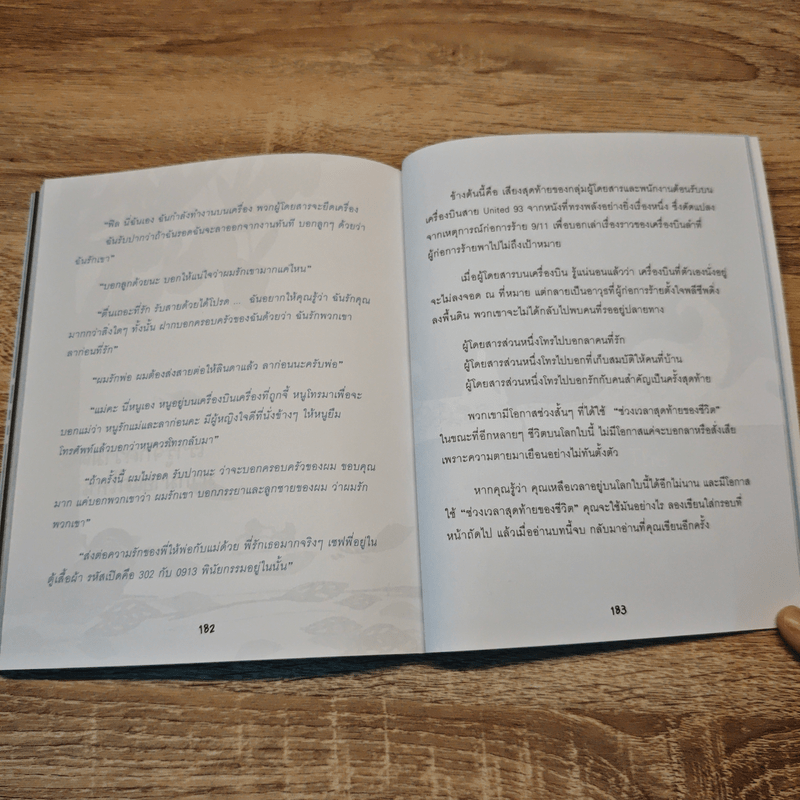 "ฟิล นี่ฉันเอง ฉันกำลังทำงานบนเครื่อง พวกผู้โดยสารจะยึดเครื่อง
ฉันรับปากว่าถ้าฉันรอดฉันจะลาออกจากงานทันที บอกลูกๆ ด้วยว่า
ฉันรักเขา"
"บอกลูกด้วยนะ บอกให้แน่ใจว่าผมรักเขามากแค่ไหน"
"ตื่นเถอะที่รัก รับสายด้วยได้โปรด .. ฉันอยากให้คุณรู้ว่า ฉันรักคุณ
มากกว่าสิ่งใดๆ ทั้งนั้น ฝากบอกครอบครัวของฉันด้วยว่า ฉันรักพวกเขา
ลาก่อนที่รัก"
"ผมรักพ่อ ผมต้องส่งสายต่อให้ลินดาแล้ว ลาก่อนนะครับพ่อ"
"แม่คะ นี่หนูเอง หนูอยู่บนเครื่องบินเครื่องที่ถูกจี้ หนูโทรมาเพื่อจะ
บอกแม่ว่า หนูรักแม่และลาก่อนคะ มีผู้หญิงใจดีที่นั่งข้างๆ ให้หนูยืม
โทรศัพท์แล้วบอกว่าหนูควรโทรกลับมา"
"ถ้าครั้งนี้ ผมไม่รอด รับปากนะ ว่าจะบอกครอบครัวของผม ขอบคุณ
มาก แค่บอกพวกเขาว่า ผมรักเขา บอกภรรยาและลูกชายของผม ว่าผมรัก
พวกเขา"
"ส่งต่อความรักของพี่ให้พ่อกับแม่ด้วย พี่รักเธอมากจริงๆ เซฟพี่อยู่ใน
ตู้เสื้อผ้า รหัสเปิดคือ 302 กับ 0913 พินัยกรรมอยู่ในนั้น"
182
ข้างต้นนี้คือ เสียงสุดท้ายของกลุ่มผู้โดยสารและพนักงานต้อนรับบน
เครื่องบินสาย United 93 จากหนังที่ทรงพลังอย่างยิ่งเรื่องหนึ่ง ซึ่งดัดแปลง
จากเหตุการณ์ก่อการร้าย 9/11 เพื่อบอกเล่าเรื่องราวของเครื่องบินลำที่
ผู้ก่อการร้ายพาไปไม่ถึงเป้าหมาย
เมื่อผู้โดยสารบนเครื่องบิน รู้แน่นอนแล้วว่า เครื่องบินที่ตัวเองนั่งอยู่
จะไม่ลงจอด ณ ที่หมาย แต่กลายเป็นอาวุธที่ผู้ก่อการร้ายตั้งใจพลีชีพดิ่ง
ลงพื้นดิน พวกเขาจะไม่ได้กลับไปพบคนที่รออยู่ปลายทาง
ผู้โดยสารส่วนหนึ่งโทรไปบอกลาคนที่รัก
ผู้โดยสารส่วนหนึ่งโทรไปบอกที่เก็บสมบัติให้คนที่บ้าน
ผู้โดยสารส่วนหนึ่งโทรไปบอกรักกับคนสำคัญเป็นครั้งสุดท้าย
พวกเขามีโอกาสช่วงสั้นๆ ที่ได้ใช้ "ช่วงเวลาสุดท้ายของชีวิต"
ในขณะที่อีกหลายๆ ชีวิตบนโลกใบนี้ ไม่มีโอกาสแค่จะบอกลาหรือสั่งเสีย
เพราะความตายมาเยือนอย่างไม่ทันตั้งตัว
หากคุณรู้ว่า คุณเหลือเวลาอยู่บนโลกใบนี้ได้อีกไม่นาน และมีโอกาส
ใช้ "ช่วงเวลาสุดท้ายของชีวิต" คุณจะใช้มันอย่างไร ลองเขียนใส่กรอบที่
หน้าถัดไป แล้วเมื่ออ่านบทนี้จบ กลับมาอ่านที่คุณเขียนอีกครั้ง
183